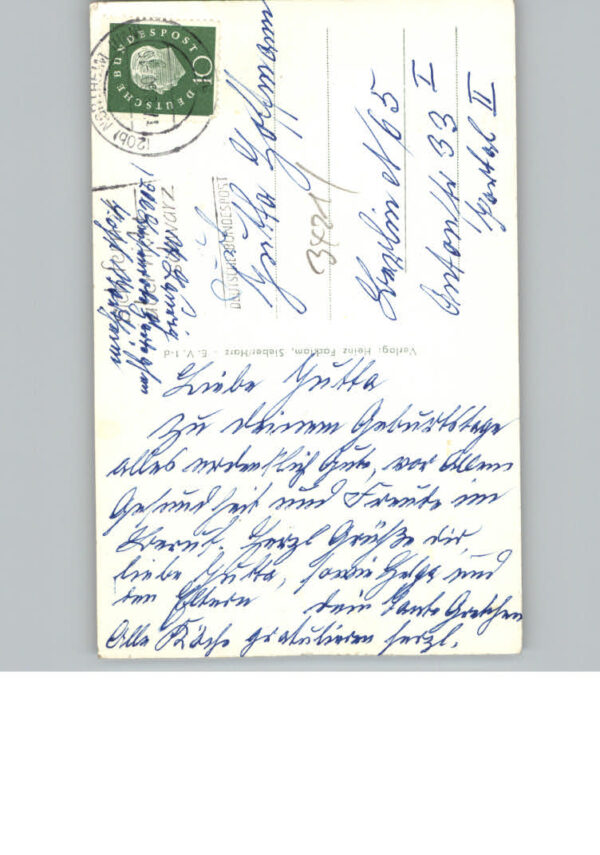 DEUTSCHE BUNDESPOST
10
(20b) NORTHEIM
DEUTSCHE BUNDESPOST
Jutta Hoffmann
Berlin N 65
Antonstr 33 I
Portal II
3421/
Verlag: Heinz Fackham, Sieber/Harz - E. V. t-d
Liebe Jutta
Zu Deinem Geburtstage
alles erdenklich Gute, vor Allem
Gesundheit und Freude im
Beruf. Herzl Grüße dir,
liebe Jutta, sowie Helga und
den Eltern Dein Tante Gretchen
Alle gratulieren herzl.